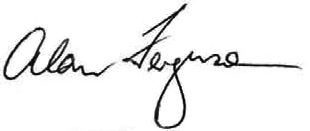 Alan Ferguson